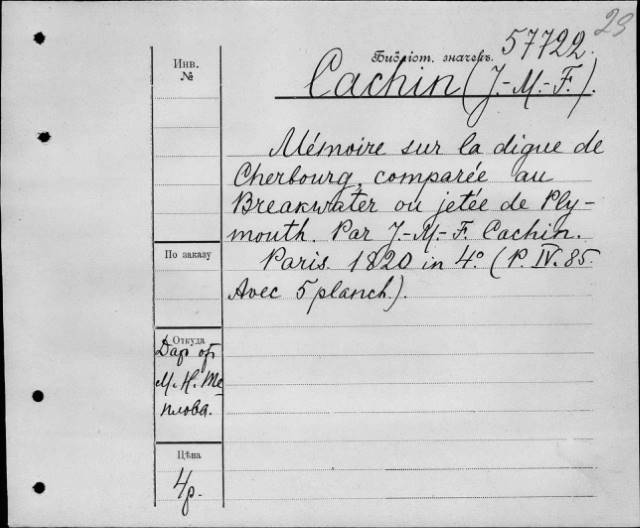 23
57722.
Библіот. значекъ.
Инв.
№
Cachin (J.-M.-F.).
Mémoire sur la digue de
Cherbourg, comparée au
Breakwater ou jetée de Ply-
mouth. Par J.-M.-F. Cachin.
Paris. 1820 in 4.° (P. IV. 85.
Avec 5 planch.).
По заказу
Откуда
Дар от
М. Н. Те
плова.
Цѣна
4р.